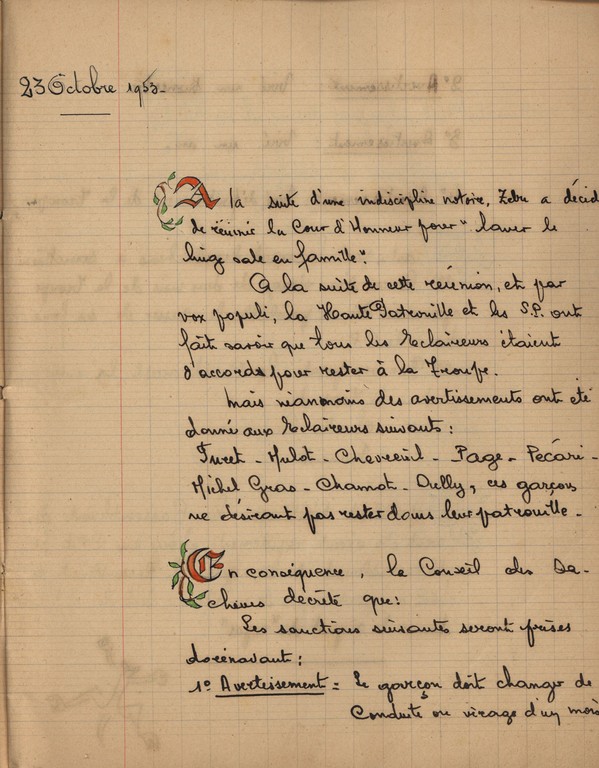 23 Octobre 1953.
A la suite d'une indiscipline notoire, Zebu a décid
de réunir la Cour d'Honneur pour "laver le
linge sale en famille".
A la suite de cette réunion, et par
vox populi, la Haute Patrouille et les S.P. ont
fait savoir que tous les Eclaireurs étaient
d'accords pour rester à la Troupe.
Mais néanmoins des avertissements ont été
donné aux Eclaireurs suivants:
Furet - Mulot - Chevreuil - Page - Pécari -
Michel Gras - Chamot - Dully, ces garçons
ne désirant pas rester dans leur patrouille.
En conséquence, le Conseil des Sa-
chems décrète que:
Les sanctions suivantes seront prises
dorénavant:
1º Avertissement = Le garçon doit changer de
Conduite ou virage d'un mois